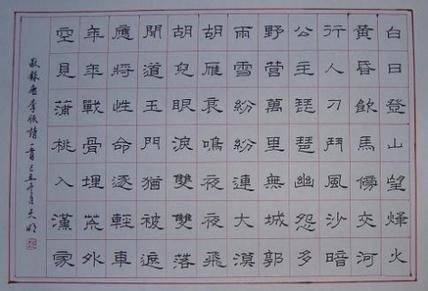 白日登山望烽火
黃昏飲馬傍交河
行人刁鬥風沙暗
公主琵琶幽怨多
野營萬里無城郭
雨雪紛紛連大漠
胡雁哀鳴夜夜飛
胡兒眼淚雙雙落
聞道玉門猶被遮
應將性命逐輕車
年年戰骨埋荒外
空見蒲桃入漢家
敬錄唐李頎詩一首己丑年天明